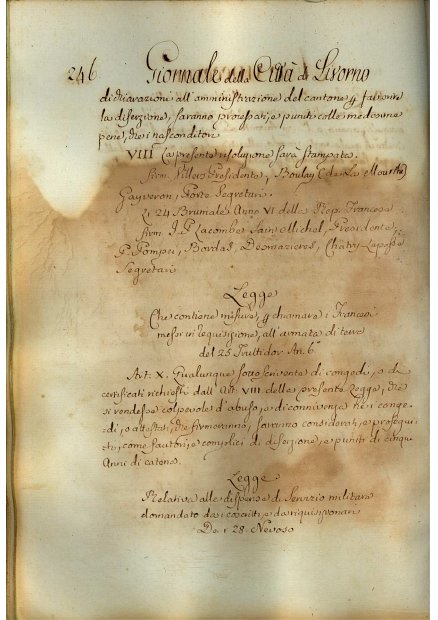 246 Giornale della Città di Livorno
dichiarazioni all'amministrazione del cantone p favorire
la diserzione, saranno processati, e puniti colle medesime
pene, che i nasconditori
VIII La presente risoluzione sarà stampata.
firm. Villers Presidente, Boulay (de La Meurthe)
Gayvernon, Porte Segretari.
Li 24 Brumale Anno VI della Rep. Francese
firm. J. P. Lacombe Saint Michel, Presidente,
P. Pompei, Bordas, Desmazieres, Chatry Lafosse
Segretari
Legge
Che contiene misure, p chiamare i Francesi
messi in requisizione, all'armata di terra
del 25 Fruttidor An. 6°
Art. X. Qualunque sottoscrivente di congedi, o di
certificati richiesti dall'Art. VIII della presente Legge, che
si rendesse colpevole d'abuso, o di connivenza nei conge-
di, o attestati, che firmeranno, saranno considerati, e prosegui-
ti, come fautori, e complici di diserzione, e puniti di cinque
Anni di catene.
Legge
Relativa alle dispense di Servizio militare
domandato da i coscritti, e da requisizionari
De 28 Nevoso